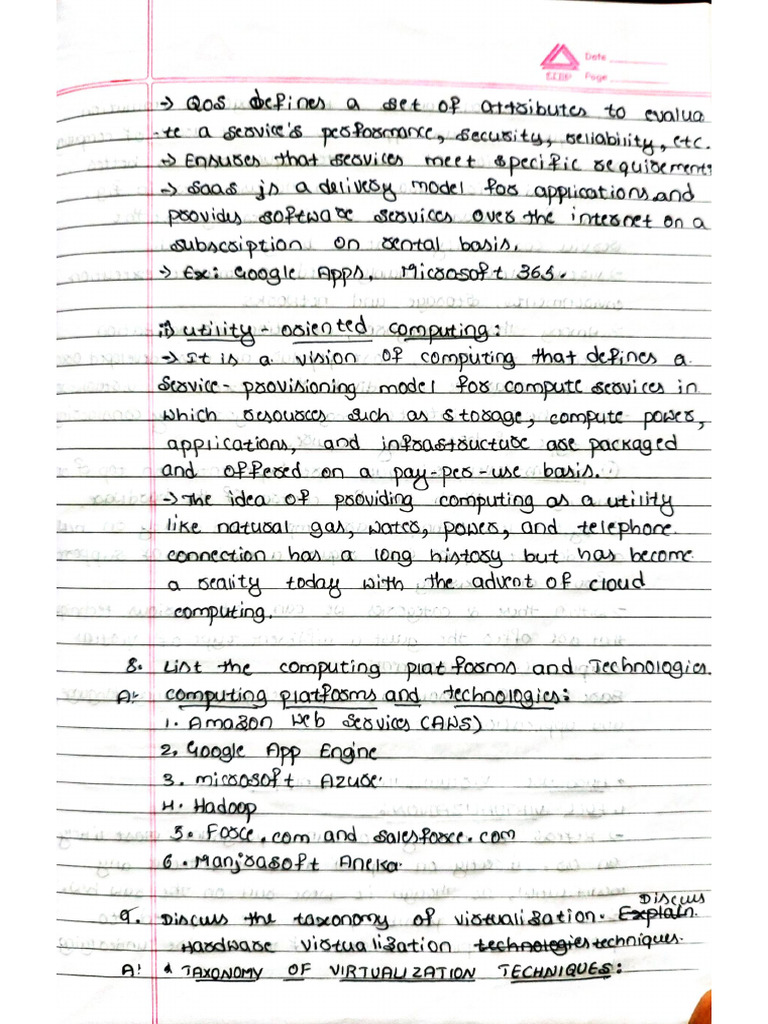 Date
SEBP Page
→ QOS defines a set of attributes to evalua
-te a service's performance, security, reliability, etc.
→ Ensures that services meet specific requirements
→ SaaS is a delivery model for applications and
provides software services over the internet on a
subscription on rental basis.
→ Ex: Google Apps, Microsoft 365.
utility-oriented computing:
→ It is a vision of computing that defines a
service-provisioning model for compute services in
which resources such as storage, compute power,
applications, and infrastructure are packaged
and offered on a pay-per-use basis.
→ The idea of providing computing as a utility
like natural gas, water, power, and telephone
connection has a long history but has become
a reality today with the advent of cloud
computing.
8. List the computing platforms and Technologies.
A: computing platforms and technologies:
1. Amazon Web Services (AWS)
2. Google App Engine
3. microsoft Azure.
4. Hadoop
5. Force.com and salesforce.com
6. Manjrasoft Aneka.
Discuss
9. Discuss the taxonomy of virtualization. Explain.
Hardware virtualization technologies techniques.
A: * TAXONOMY OF VIRTUALIZATION TECHNIQUES: